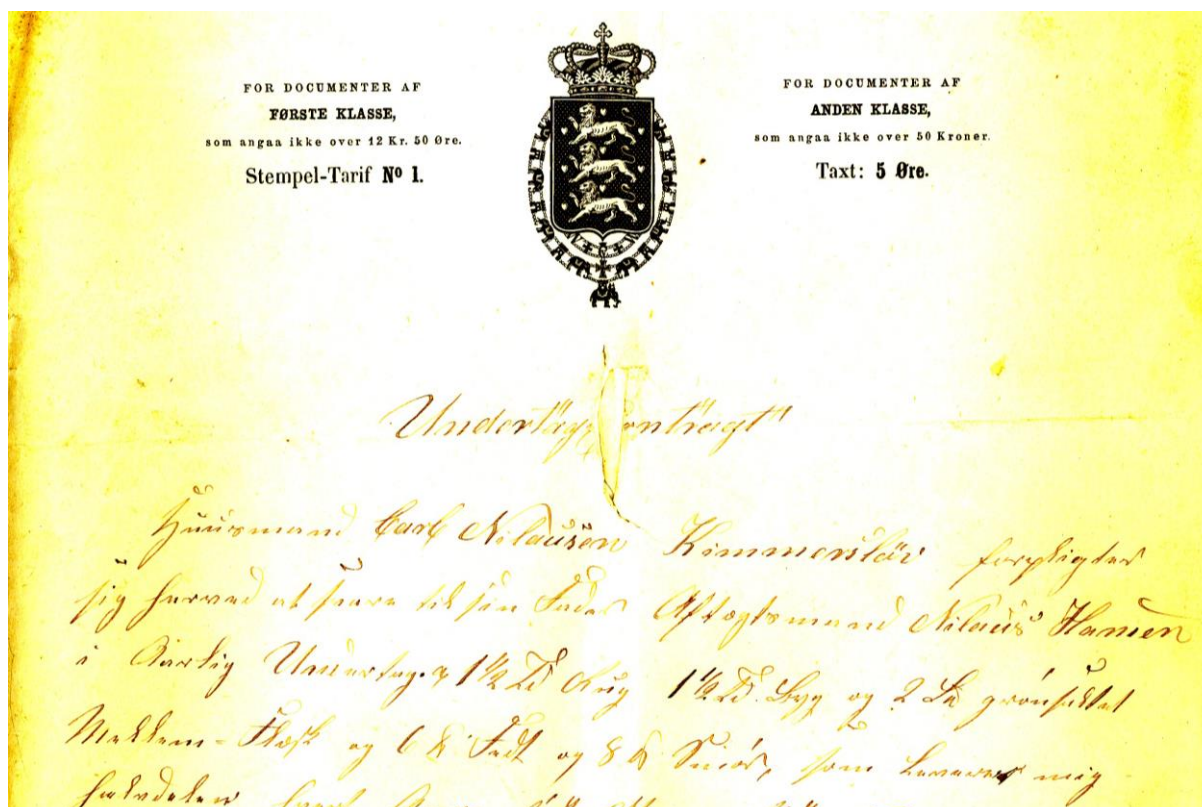 FOR DOCUMENTER AF
FØRSTE KLASSE,
som angaa ikke over 12 Kr. 50 Øre.
Stempel-Tarif Nº 1.
FOR DOCUMENTER AF
ANDEN KLASSE,
som angaa ikke over 50 Kroner.
Taxt: 5 Øre.
Huusmand Carl Nilausen Kimmerslöi forpligter
sig herved at svare til sin Fader Aftægtsmand Nilaus Hansen
i Aarlig 1 1/2 Td Rug 1 1/2 Td. Byg og 2
Mellem-Flæsk og 6 Fedt og 8 Smör, som Leveres mig